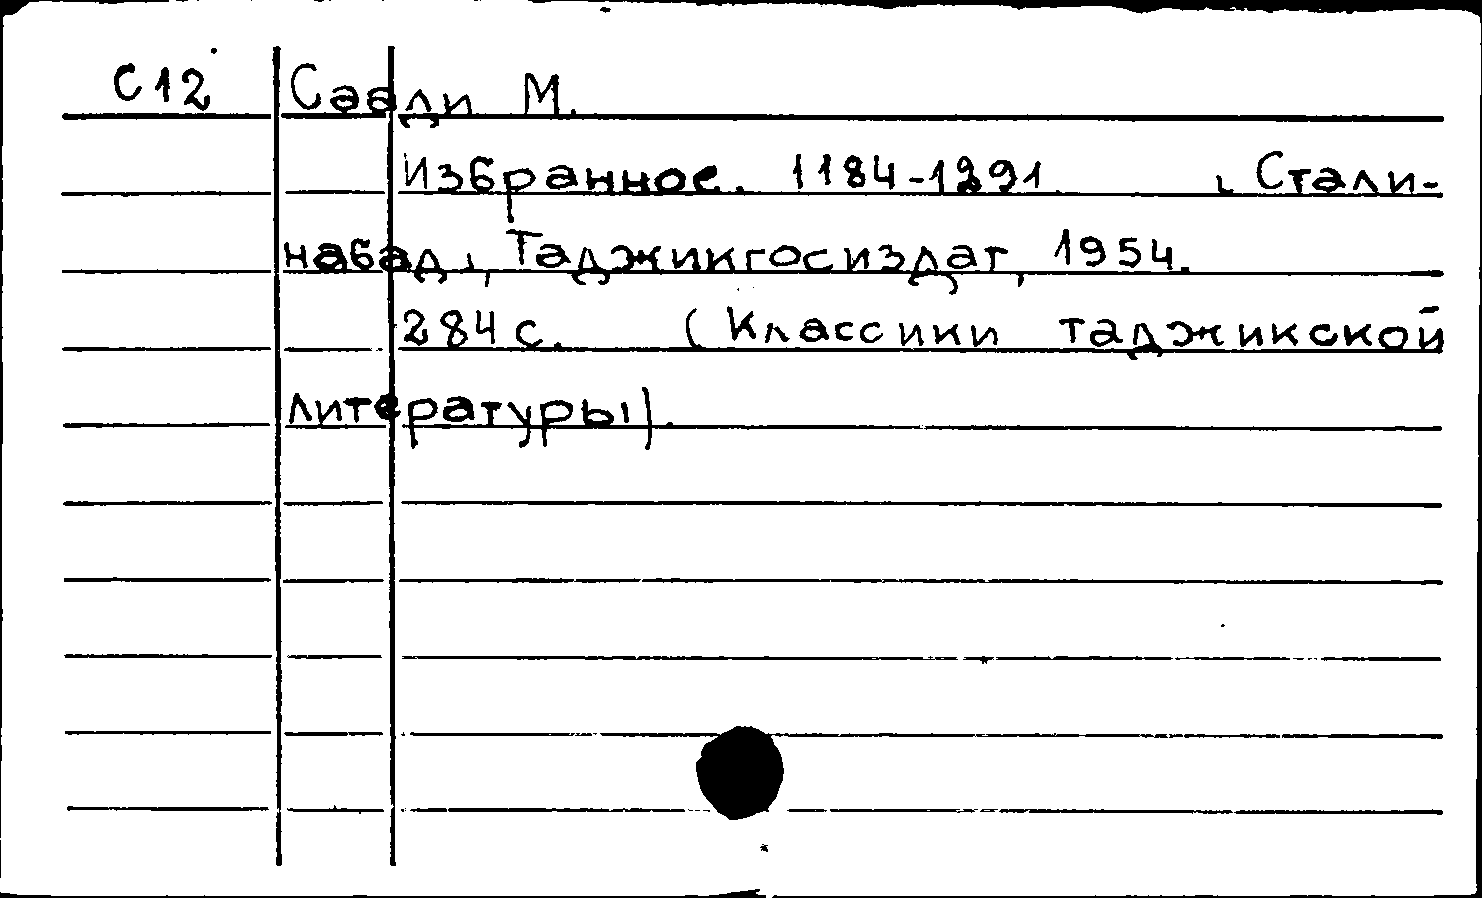 С12 Саади М.
Избранное. 1184-1291. Стали-
набад, Таджикгосиздат, 1954.
284 с. (Классики таджикской
литературы).